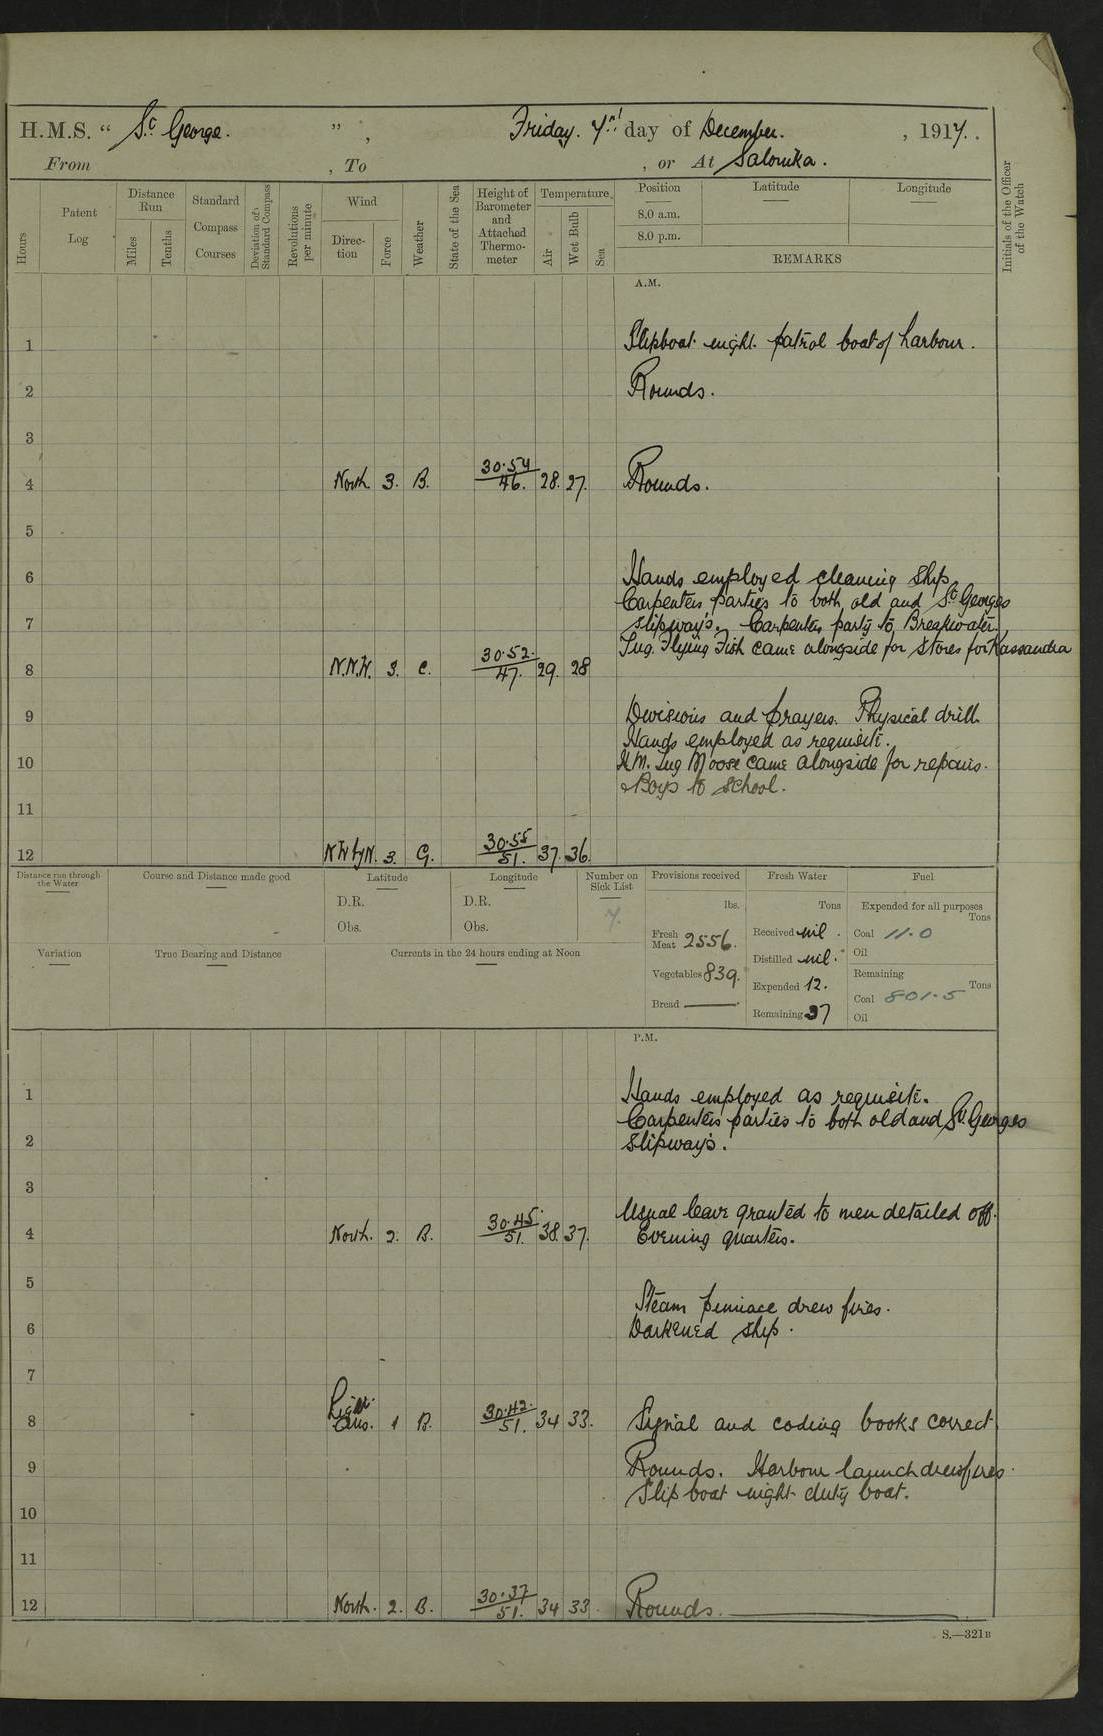 H.M.S. " St George. " , Friday. 7th day of December. , 1917.
From , To , or At Salonika.
Hours
Patent Log
Distance Run
Miles
Tenths
Standard Compass Courses
Deviation of Standard Compass
Revolutions per minute
Wind
Direction
Force
Weather
State of the Sea
Height of Barometer and Attached Thermometer
Temperature
Air
Wet Bulb
Sea
Position
Latitude
Longitude
8.0 a.m.
8.0 p.m.
REMARKS
Initials of the Officer of the Watch
A.M.
1 Slipboat night patrol boat of harbour.
2 Rounds.
3
4 North 3. B. 30.54 46. 28. 27. Rounds.
5
6 Hands employed cleaning ship
Carpenters parties to both old and St Georges
7 slipway's. Carpenters party to Breakwater.
Tug Flying Fish came alongside for stores for Kassandra
8 N.N.W. 3. C. 30.52. 47. 29. 28
9 Divisions and prayers. Physical drill
Hands employed as requisite.
10 H.M. Tug Moose came alongside for repairs.
Boys to school.
11
12 NWbyN. 3. G. 30.55 51. 37. 36.
Distance run through the Water
Course and Distance made good
Latitude
D.R.
Obs.
Longitude
D.R.
Obs.
Number on Sick List
7.
Provisions received
lbs.
Fresh Meat 2556.
Vegetables 839.
Bread
Fresh Water
Tons
Received nil.
Distilled nil.
Expended 12.
Remaining 37
Fuel
Expended for all purposes
Tons
Coal 11.0
Oil
Remaining
Tons
Coal 801.5
Oil
Variation
True Bearing and Distance
Currents in the 24 hours ending at Noon
P.M.
1 Hands employed as requisite.
Carpenters parties to both old and St Georges
2 slipway's.
3
Usual leave granted to men detailed off.
4 North. 2. B. 30.45. 51. 38. 37. Evening quarters.
5
Steam pinnace drew fires.
6 Darkened ship.
7
8 Light Airs. 1 B. 30.42. 51. 34 33. Signal and coding books correct
9 Rounds. Harbour launch drew fires.
Slip boat night duty boat.
10
11
12 North. 2. B. 30.37 51. 34 33 Rounds.
S.—321B